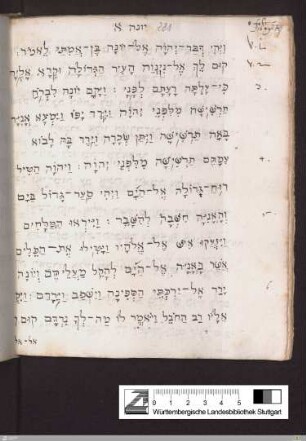 יונה א
וַיְהִי דְּבַר־יְהוָֹה אֶל־יוֹנָה בֶן־אֲמִתַּי לֵאמֹר׃
קוּם לֵךְ אֶל־נִינְוֵה הָעִיר הַגְּדוֹלָה וּקְרָא עָלֶיהָ
כִּי־עָלְתָה רָעָתָם לְפָנָי׃ וַיָּקָם יוֹנָה לִבְרֹחַ
תַּרְשִׁישָׁה מִלִּפְנֵי יְהוָֹה וַיֵּרֶד יָפוֹ וַיִּמְצָא אֳנִיָּה
בָּאָה תַרְשִׁישׁ וַיִּתֵּן שְׂכָרָהּ וַיֵּרֶד בָּהּ לָבוֹא
עִמָּהֶם תַּרְשִׁישָׁה מִלִּפְנֵי יְהוָֹה׃ וַיהוָֹה הֵטִיל
רוּחַ־גְּדוֹלָה אֶל־הַיָּם וַיְהִי סַעַר־גָּדוֹל בַּיָּם
וְהָאֳנִיָּה חִשְּׁבָה לְהִשָּׁבֵר׃ וַיִּירְאוּ הַמַּלָּחִים
וַיִּזְעֲקוּ אִישׁ אֶל־אֱלֹהָיו וַיָּטִילוּ אֶת־הַכֵּלִים
אֲשֶׁר בָּאֳנִיָּה אֶל־הַיָּם לְהָקֵל מֵעֲלֵיהֶם וְיוֹנָה
יָרַד אֶל־יַרְכְּתֵי הַסְּפִינָה וַיִּשְׁכַּב וַיֵּרָדַם׃ וַיִּקְ
אֵלָיו רַב הַחֹבֵל וַיֹּאמֶר לוֹ מַה־לְּךָ נִרְדָּם קוּם
0 1 2 3 4 5 6 7 8 9 10
Württembergische Landesbibliothek Stuttgart